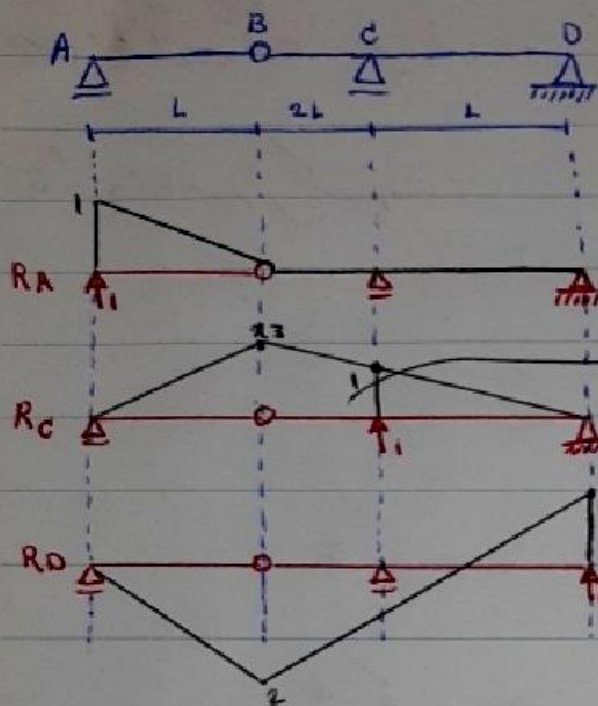 A B C D
L 2L L
1
RA 1
3
1
RC 1
RD
2